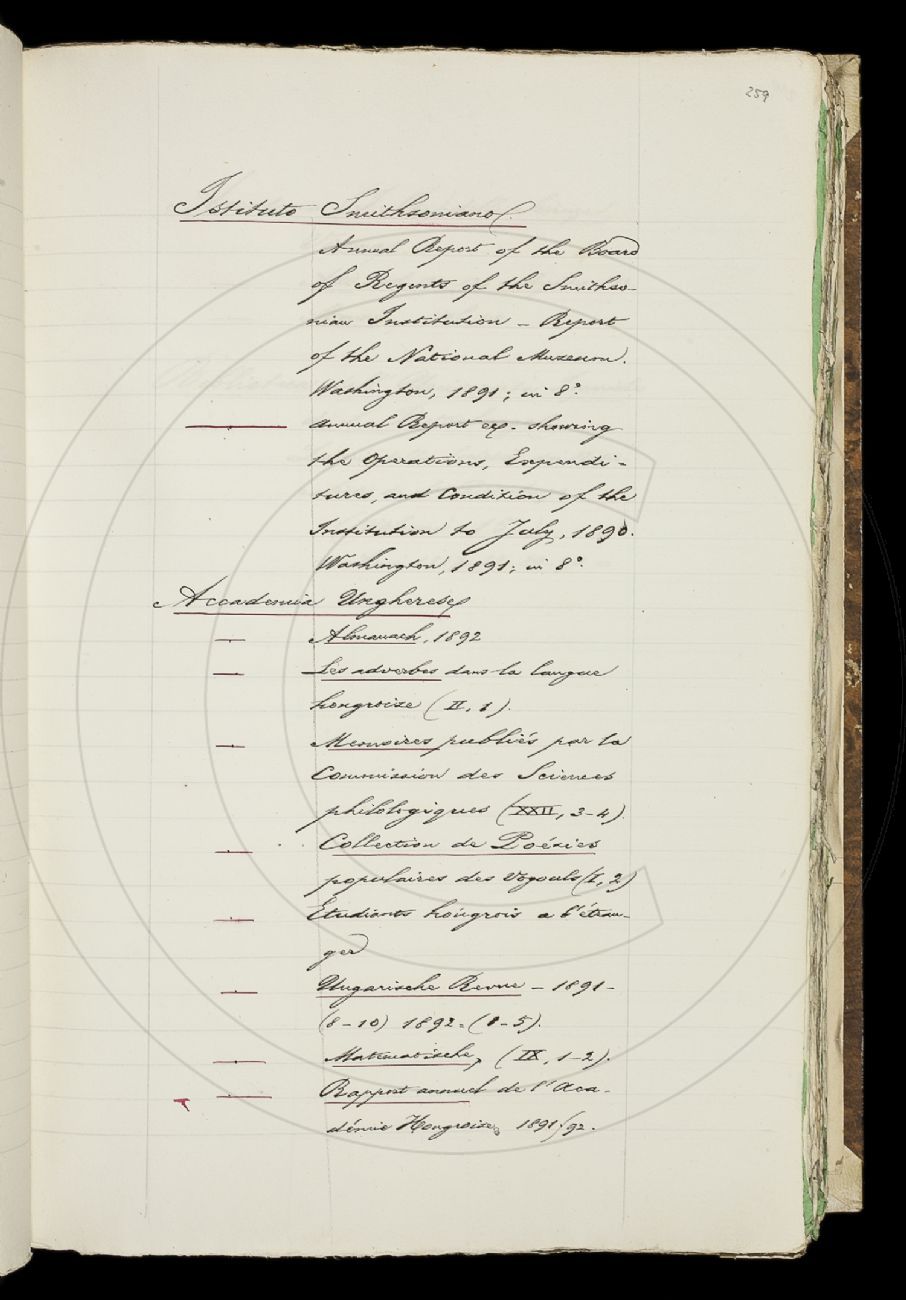 259
Istituto Smithsoniano.
Annual Report of the Board
of Regents of the Smithso-
nian Institution - Report
of the National Museum.
Washington, 1891; in 8°.
Annual Report ec. showing
the Operations, Expendi-
tures, and Condition of the
Institution to July, 1890.
Washington, 1891; in 8°.
Accademia Ungherese
Almanach, 1892
Les adverbes dans la langue
hongroise (II, 1).
Memoires publiés par la
Commission des Sciences
philologiques (XXII, 3-4).
Collection de Poésies
populaires des Vogouls (I, 2)
Étudiants hongrois a l'étran-
ger
Ungarische Revue - 1891-
(8-10) 1892-(1-5).
Matematische, (IX, 1-2).
Rapport annuel de l'Aca-
démie Hongroise, 1891/92.